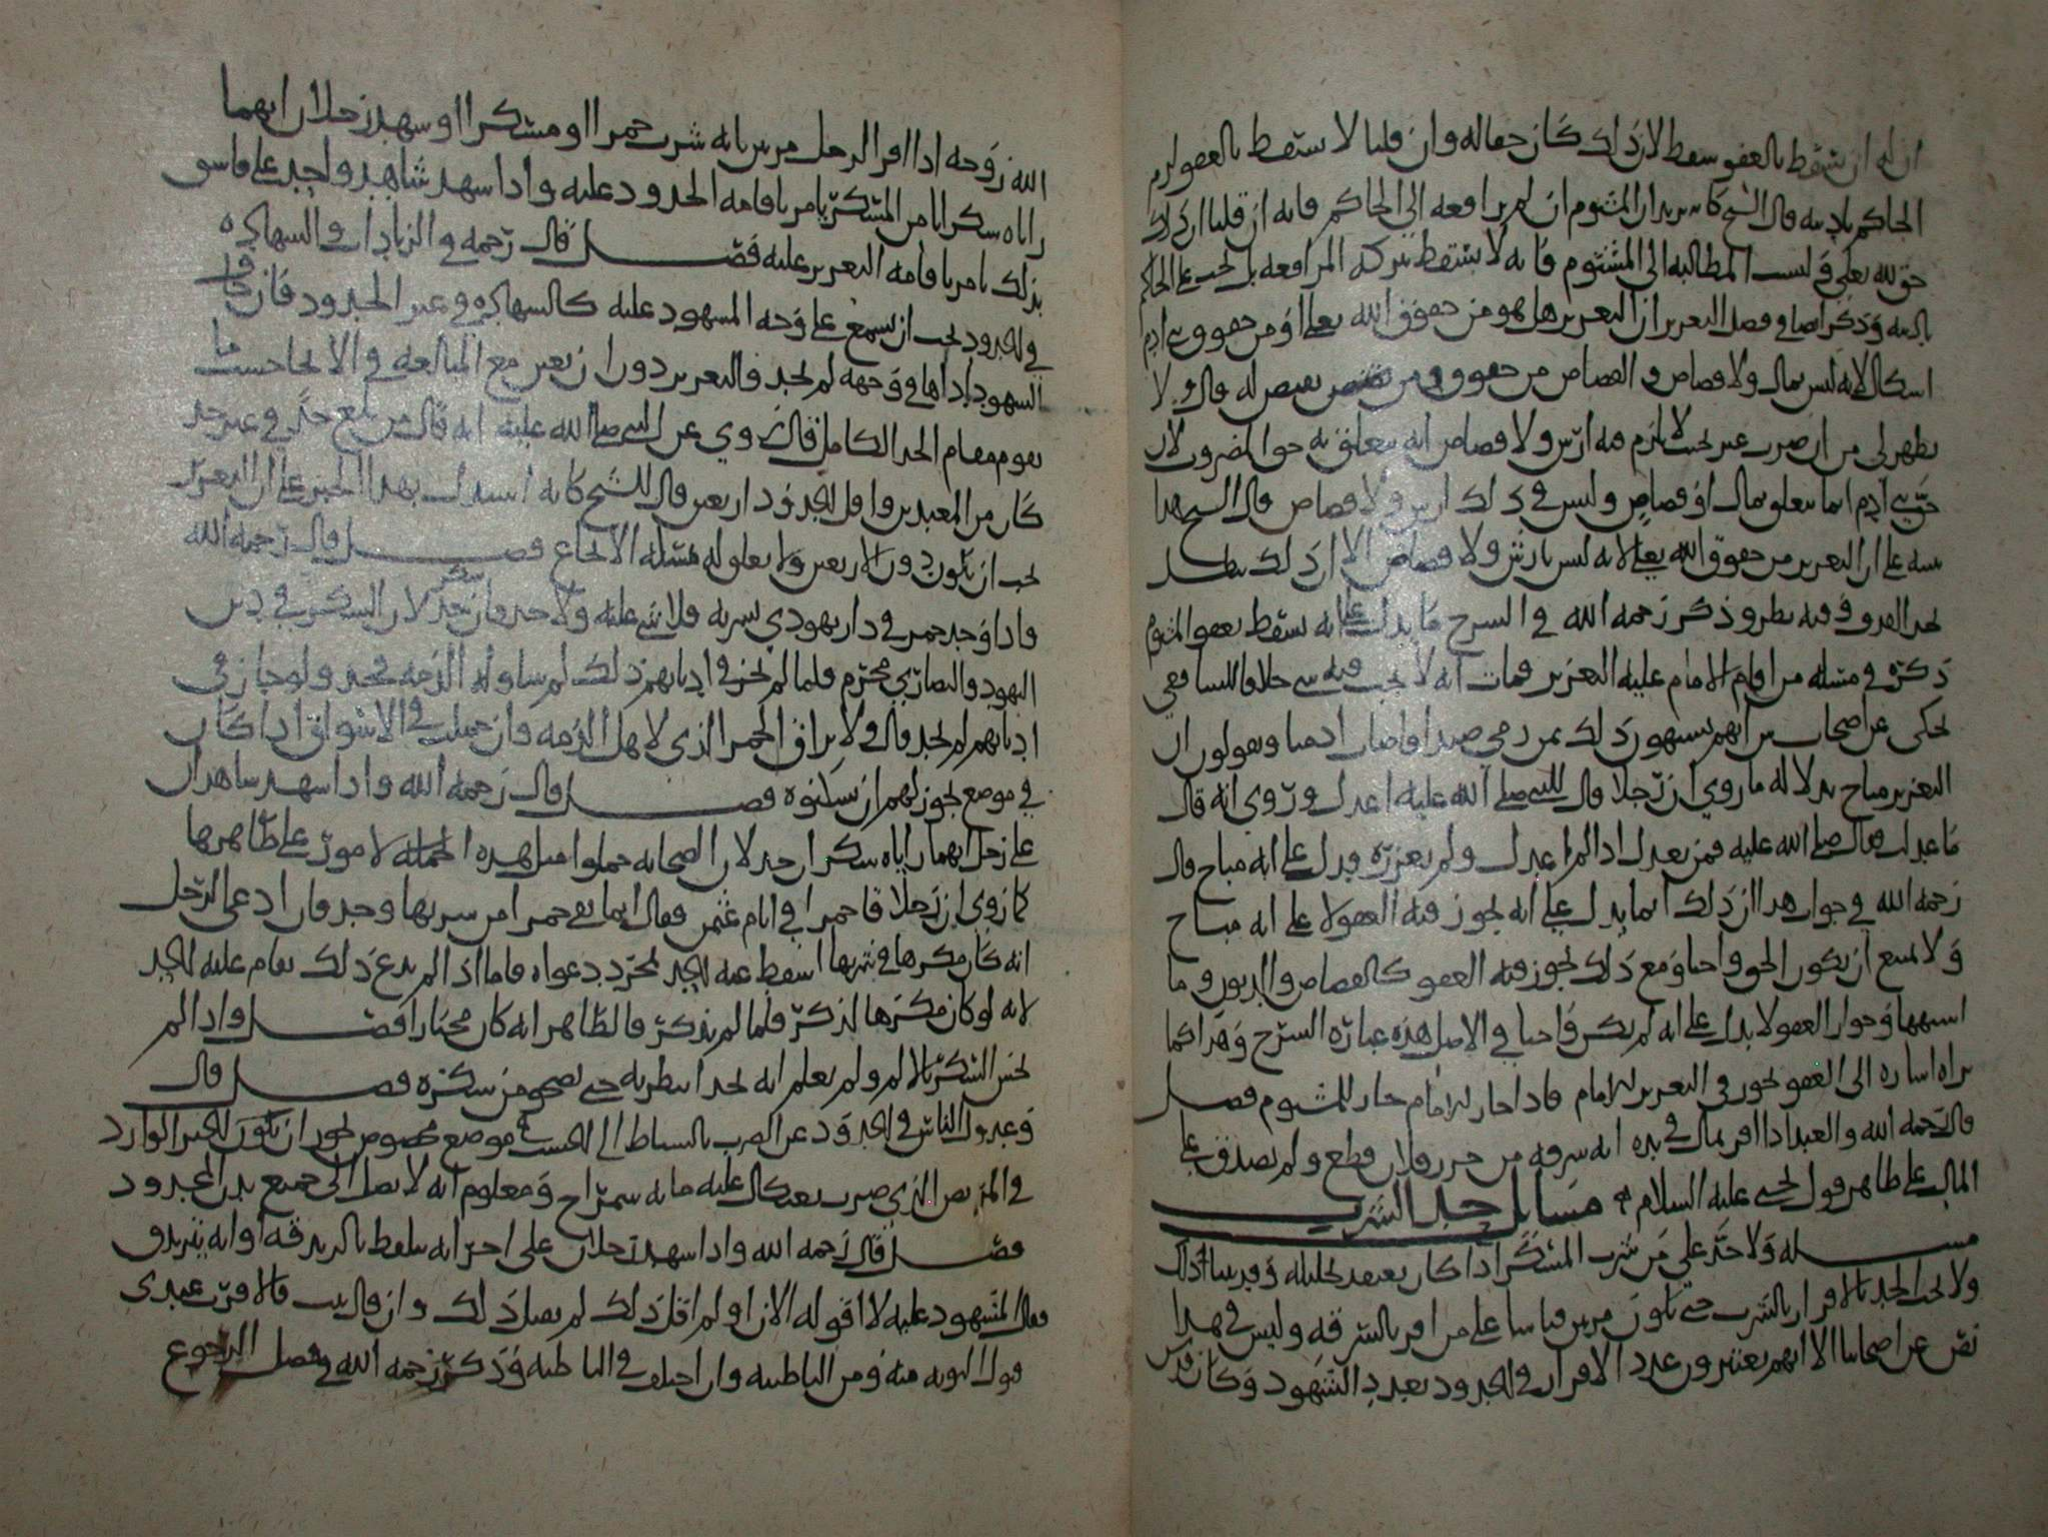 ان له ان يسقط بالعفو سقط لان ذلك كان حقا له وان قلنا لا يسقط بالعفو لزم
الحاكم تاديبه قال الشيخ كانه يريد ان المشتوم ان لم يرافعه الى الحاكم فانه ان قلنا ان ذلك
حق لله تعلى وليست المطالبه الى المشتوم فانه لا يسقط بتركه المرافعه بل يجب على الحاكم
تاديبه وذكر ايضا في فصل التعزير ان التعزير هل هو من حقوق الله تعلى او من حقوق بني ادم
اشكال لانه ليس بمال ولا قصاص و القصاص من حقوق من يقتص له قال ولا
يظهر لي من ان ضرب عبر بحيث لا يلزم فيه ارش ولا قصاص انه يتعلق به حق المضروب لان
حق بني ادم انما يتعلق بمال او قصاص وليس في ذلك ارش ولا قصاص قال الشيخ هذا
يبنيه على ان التعزير من حقوق الله تعلى لانه ليس بارش ولا قصاص الا ان ذلك يبطل
بحد القذف وفيه نظر وذكر رحمه الله في الشرح ما يدل على انه يسقط بعفو المشتوم
ذكره في مسئله من اقام الامام عليه التعزير فمات انه لا يجب فيه شي خلافا للشافعي
يحكى عن اصحاب ش انهم يشبهون ذلك بمن رمى صيدا واصاب ادميا ويقولون ان
التعزير مباح بدلاله ما روي ان رجلا قال للنبي صلى الله عليه اعدل وروي انه قال
ما عدلت فقال صلى الله عليه فمن يعدل اذا لم اعدل ولم يعزره فدل على انه مباح قال
رحمه الله في جواب هذا ان ذلك انما يدل على انه يجوز فيه العفو لا على انه مباح
ولا يمتنع ان يكون الحق واجبا ومع ذلك يجوز فيه العفو كالقصاص والديون وما
اشبهها وجواز العفو لا يدل على انه لم يكن واجبا في الاصل هذه عباره الشرح وهذا كما
تراه اشاره الى ان العفو يجوز في التعزير للامام فاذا جاز للامام جاز للمشتوم فصل
قال رحمه الله والعبد اذا اقر بمال في يده انه سرقه من حرز فلان قطع ولم يصدق على
المال على ظاهر قول يحيى عليه السلام مسائل حد الشرب
مسله ولا حد على من شرب المسكر اذا كان يعتقد تحليله وقد بينا ذلك
ولا يجب الحد بالاقرار بالشرب حتى يكون مرتين قياسا على من اقر بالسرقه وليس في هذا
نص عن اصحابنا الا انهم يعتبرون عدد الاقرار في الحدود بعدد الشهود وكان قدس
الله روحه اذا اقر الرجل مرتين بانه شرب خمرا او مسكرا او شهد رجلان انهما
راياه سكرانا من المسكر يامر باقامه الحدود عليه واذا شهد شاهد واحد على فاسق
بذلك يامر باقامه التعزير عليه فصل قال رحمه في الزيادات والشهاده
في الحدود يجب ان تسمع على وجه المشهود عليه كالشهاده في غير الحدود فان قال
الشهود اداها في وجهه لم يحد فالتعزير دون ان يعين مع المبالغه في الايجاع حيث ما
يقوم مقام الحد الكامل قال روي عن النبي صلى الله عليه انه قال من بلغ حدا في غير حد
كان من المعتدين واقل الحدود اربعين قال الشيخ كانه استدل بهذا الخبر على ان التعزير
يجب ان يكون دون الاربعين ولا تعلق له بمسئله الايجاع فصل قال رحمه الله
واذا وجد خمر في دار يهودي يشربه فلا شي عليه ولا حد فان سكر حد لان السكر في دين
اليهود والنصارى محرم فلما لم يجز في اديانهم ذلك لم يتناوله الذمه فحد ولو جاز في
اديانهم لم يحد قال ولا يراق الخمر الذي لاهل الذمه وان حملت في الاسواق اذا كان
في موضع يجوز لهم ان يسكنوه فصل قال رحمه الله واذا شهد شاهدان
على رجل انهما راياه سكران حد لان الصحابه حملوا مثل هذه الحمله لامور على ظاهرها
كما روي ان رجلا قا خمرا في ايام عثمن فقال انما يقي خمرا من شربها وحد فان ادعى الرجل
انه كان مكرها في شربها اسقط عنه الحد بمجرد دعواه فاما اذا لم يدع ذلك يقام عليه الحد
لانه لو كان مكرها لذكر فلما لم يذكر فالظاهر انه كان مختارا فصل واذا لم
يحس السكران بالالم ولم يعلم انه يحد انتظر به حتى يصحو من سكره فصل قال
وعدول الناس في الحدود عن الضرب بالسياط الى الخشب في موضع مخصوص يجوز ان يكون الخبر الوارد
في المريض الذي ضرب بعثكال عليه مايه شمراخ ومعلوم انه لا يصل الى جميع بدن المحدود
فصل قال رحمه الله واذا شهد رجلان على اخر انه تلفظ بالزندقه او انه يتزندق
فقال المشهود عليه لا اقوله الان او لم اقل ذلك لم يقتل ذلك وان قال تبت فالاقرب عندي
قول التوبه منه ومن الباطنيه وان اختلف في الباطنيه وذكر رحمه الله في فصل الرجوع